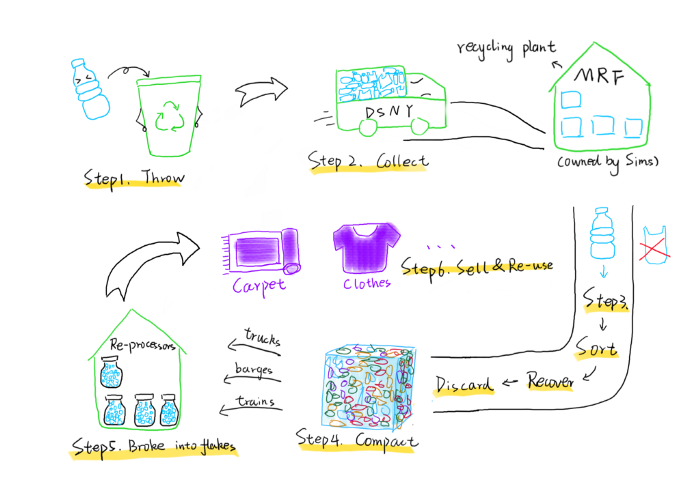 recycling plant
MRF
DSNY
(owned by Sims)
Step1. Throw
Step 2. Collect
Carpet
Clothes
Step6. Sell & Re-use
Step3.
Sort
Recover
Discard
Re-processors
trucks
barges
trains
Step4. Compact
Step5. Broke into flakes